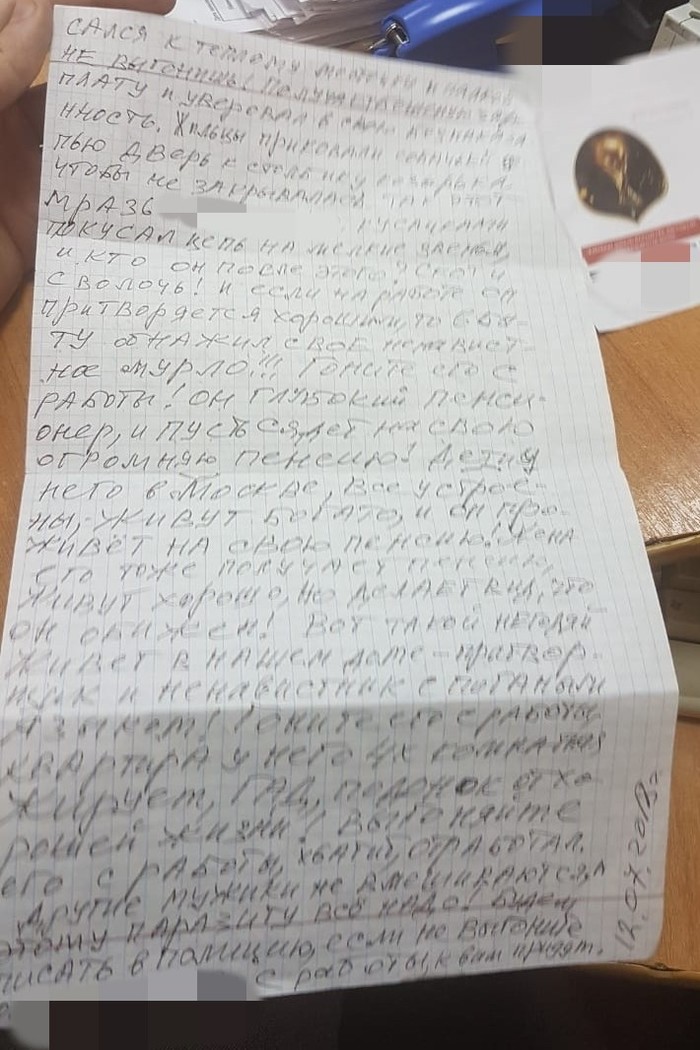 САЛСЯ К ТЕПЛОМУ МЕСТЕЧКУ И НАДО
НЕ ВЫГОНИШЬ! ПОЛУЧАЕТ БЕШЕНУЮ ЗАР-
ПЛАТУ И УВЕРОВАЛ В СВОЮ БЕЗНАКАЗА
ННОСТЬ. Жильцы ПРИКОВАЛИ
ПЬЮ ДВЕРЬ К СТОЛБИКУ КОЗЫРЬКА
ЧТОБЫ НЕ ЗАКРЫВАЛАСЬ ТАК ЭТОТ
МРАЗЬ
КУСАЧКАМИ
ПОКУСАЛ ЦЕПЬ НА МЕЛКИЕ ЗВЕНЬЯ,
И КТО ОН ПОСЛЕ ЭТОГО? СКОТ И
СВОЛОЧЬ! И ЕСЛИ НА РАБОТЕ ОН
ПРИТВОРЯЕТСЯ ХОРОШИМ, ТО В БЫ-
ТУ ОБНАЖИЛ СВОЁ НЕНАВИСТ-
НОЕ МУРЛО!!! ГОНИТЕ ЕГО С
РАБОТЫ! ОН ГЛУБОКИЙ ПЕНСИ-
ОНЕР, И ПУСТЬ СЯДЕТ НА СВОЮ
ОГРОМНЯЮ ПЕНСИЮ! ДЕТИ У
НЕГО В МОСКВЕ, ВСЕ УСТРОЕ-
НЫ, ЖИВУТ БОГАТО, И ОН ПРО-
ЖИВЁТ НА СВОЮ ПЕНСИЮ! ЖЕНА
ЕГО ТОЖЕ ПОЛУЧАЕТ ПЕНСИЮ,
ЖИВУТ ХОРОШО, НО ДЕЛАЕТ ВИД, ЧТО
ОН ОБИЖЕН! ВОТ ТАКОЙ НЕГОДЯЙ
ЖИВЕТ В НАШЕМ ДОМЕ - ПРИТВОР-
ЩИК И НЕНАВИСТНИК С ПОГАНЫМ
ЯЗЫКЕМ! ГОНИТЕ ЕГО С РАБОТЫ
КВАРТИРА У НЕГО 4Х КОМНАТНАЯ
ЖИРУЕТ, ГАД, ПОДОНОК ОТ ХО-
РОШЕЙ ЖИЗНИ! ВЫГОНЯЙТЕ
ЕГО С РАБОТЫ, ХВАТИТ, ОТРАБОТАЛ.
ДРУГИЕ МУЖИКИ НЕ ВМЕШИВАЮТСЯ, А
ЭТОМУ ПАРАЗИТУ ВСЁ НАДО! БУДЕМ
ПИСАТЬ В ПОЛИЦИЮ, ЕСЛИ НЕ ВЫГОНИТЕ
С РАБОТЫ, К ВАМ ПРИДУТ.
12.07.2018г.